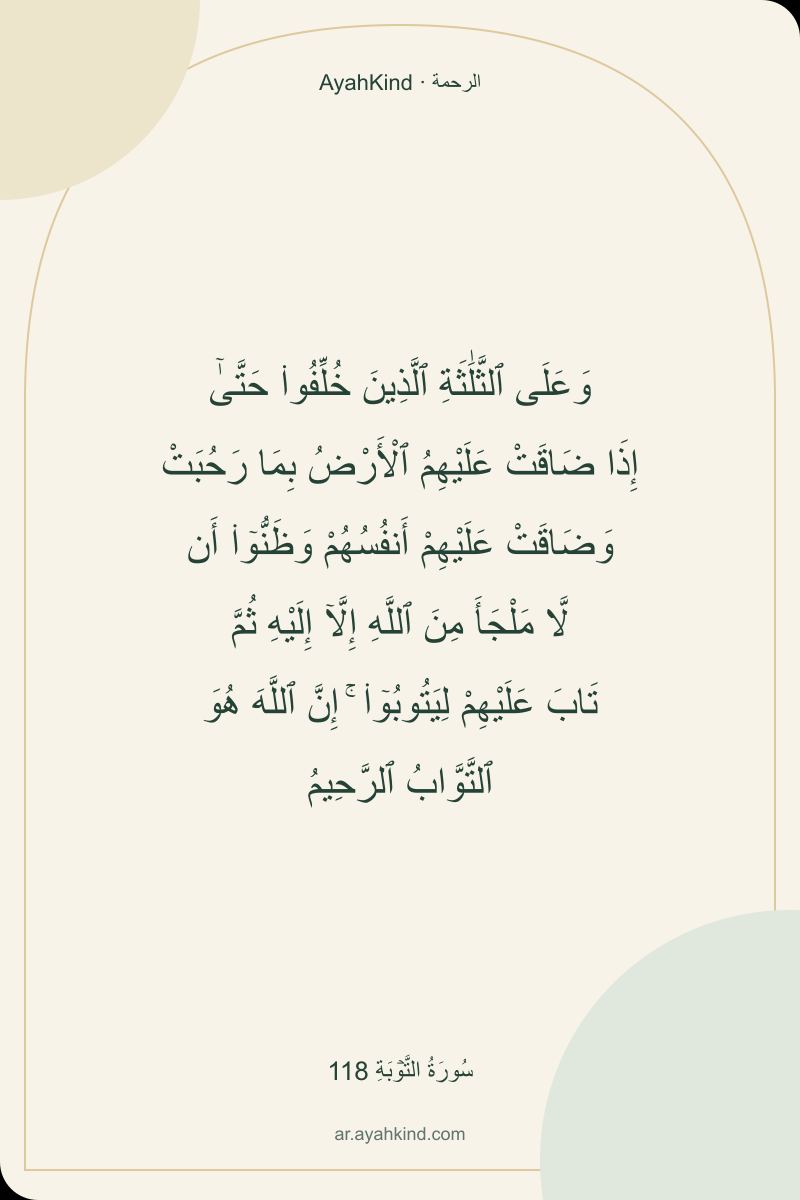 AyahKind · الرحمة
وَعَلَى ٱلثَّلَٰثَةِ ٱلَّذِينَ خُلِّفُوا۟ حَتَّىٰٓ
إِذَا ضَاقَتْ عَلَيْهِمُ ٱلْأَرْضُ بِمَا رَحُبَتْ
وَضَاقَتْ عَلَيْهِمْ أَنفُسُهُمْ وَظَنُّوٓا۟ أَن
لَّا مَلْجَأَ مِنَ ٱللَّهِ إِلَّآ إِلَيْهِ ثُمَّ
تَابَ عَلَيْهِمْ لِيَتُوبُوٓا۟ ۚ إِنَّ ٱللَّهَ هُوَ
ٱلتَّوَّابُ ٱلرَّحِيمُ
سُورَةُ التَّوۡبَةِ 118
ar.ayahkind.com